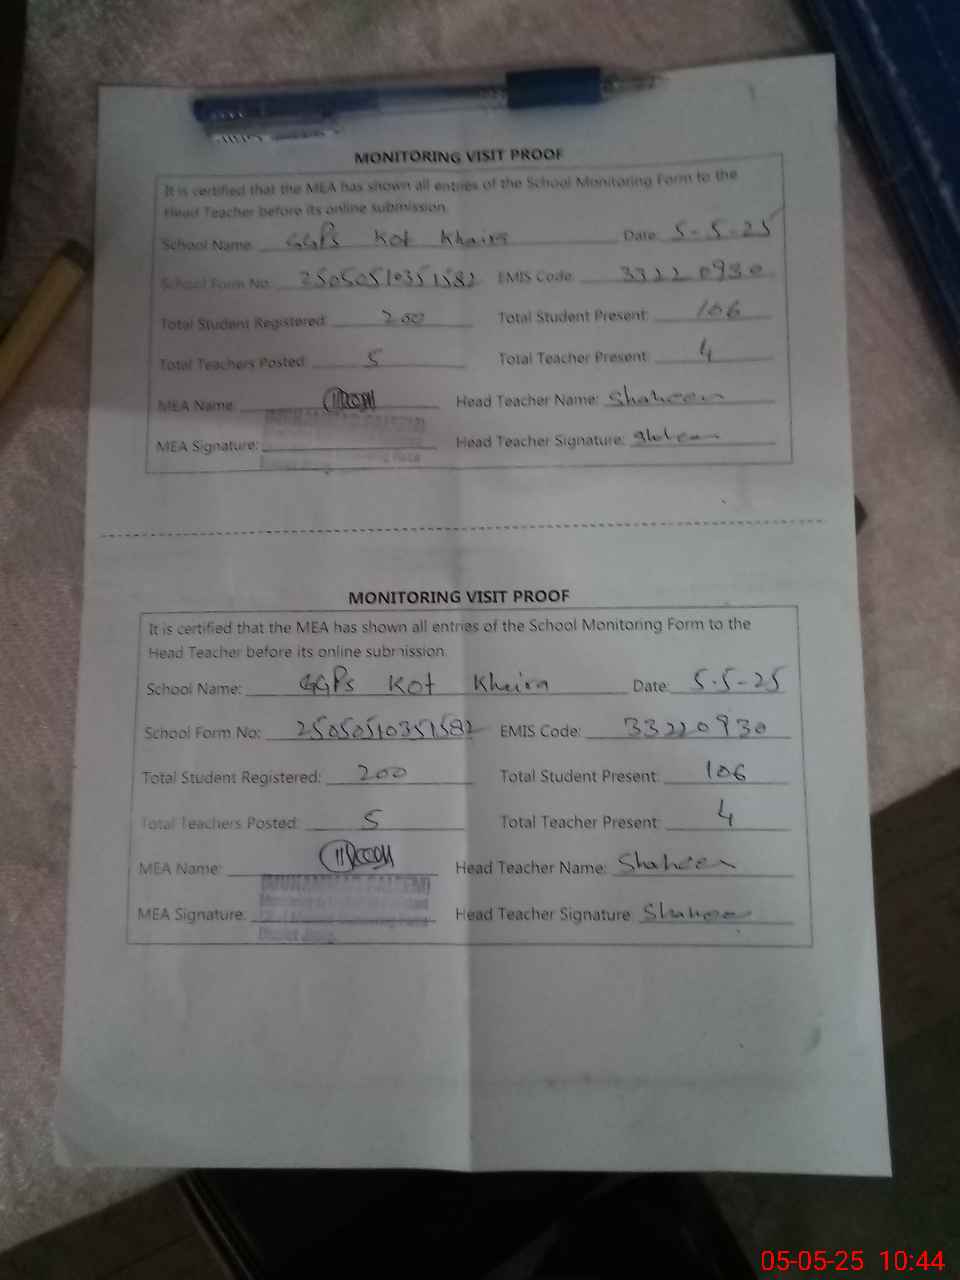 MONITORING VISIT PROOF
It is certified that the MEA has shown all entries of the School Monitoring Form to the
Head Teacher before its online submission.
School Name: GGPS Kot Khaira Date: 5-5-25
School Form No: 25050510351582 EMIS Code: 33220930
Total Student Registered: 200 Total Student Present: 106
Total Teachers Posted: 5 Total Teacher Present: 4
MEA Name: Head Teacher Name: Shaheen
MEA Signature: Head Teacher Signature: Shaheen
MONITORING VISIT PROOF
It is certified that the MEA has shown all entries of the School Monitoring Form to the
Head Teacher before its online submission.
School Name: GGPS Kot Khaira Date: 5-5-25
School Form No: 25050510351582 EMIS Code: 33220930
Total Student Registered: 200 Total Student Present: 106
Total Teachers Posted: 5 Total Teacher Present: 4
MEA Name: Head Teacher Name: Shaheen
(MUHAMMAD SALEEM)
MEA Signature: Head Teacher Signature Shaheen
05-05-25 10:44